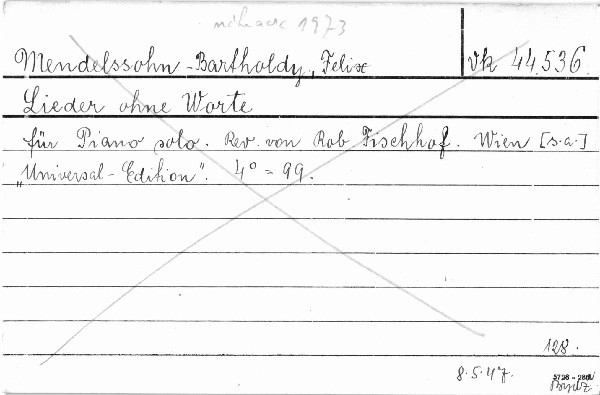 1973
Mendelssohn-Bartholdy, Felix
VK 44.536
Lieder ohne Worte
für Piano solo. Rev. von Rob Fischhof. Wien [s.a.]
„Universal-Edition". 4° = 99.
128.
8.5.47.